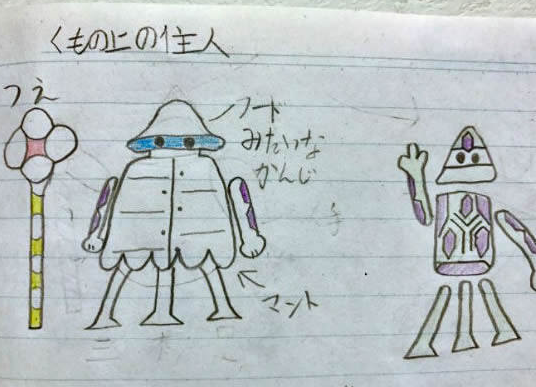 くもの上の住人
つえ
フード
みたいな
かんじ
マント